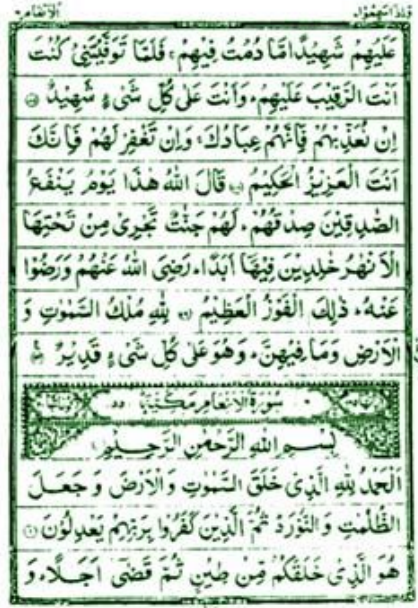 وَاِذَا سَمِعُوْا ٧ الْاَنْعَام ٦
عَلَيْهِمْ شَهِيْدًا مَّا دُمْتُ فِيْهِمْ ۚ فَلَمَّا تَوَفَّيْتَنِيْ كُنْتَ
اَنْتَ الرَّقِيْبَ عَلَيْهِمْ ؕ وَاَنْتَ عَلٰى كُلِّ شَیْءٍ شَهِيْدٌ
اِنْ تُعَذِّبْهُمْ فَاِنَّهُمْ عِبَادُكَ ۚ وَاِنْ تَغْفِرْ لَهُمْ فَاِنَّكَ
اَنْتَ الْعَزِيْزُ الْحَكِيْمُ قَالَ اللّٰهُ هٰذَا يَوْمُ يَنْفَعُ
الصّٰدِقِيْنَ صِدْقُهُمْ ؕ لَهُمْ جَنّٰتٌ تَجْرِيْ مِنْ تَحْتِهَا
الْاَنْهٰرُ خٰلِدِيْنَ فِيْهَاۤ اَبَدًا ؕ رَضِیَ اللّٰهُ عَنْهُمْ وَرَضُوْا
عَنْهُ ؕ ذٰلِكَ الْفَوْزُ الْعَظِيْمُ لِلّٰهِ مُلْكُ السَّمٰوٰتِ وَ
الْاَرْضِ وَمَا فِيْهِنَّ ؕ وَهُوَ عَلٰى كُلِّ شَیْءٍ قَدِيْرٌ
سُوْرَةُ الْاَنْعَامِ مَكِّيَّةٌ
بِسْمِ اللّٰهِ الرَّحْمٰنِ الرَّحِيْمِ
اَلْحَمْدُ لِلّٰهِ الَّذِيْ خَلَقَ السَّمٰوٰتِ وَالْاَرْضَ وَجَعَلَ
الظُّلُمٰتِ وَالنُّوْرَ ؕ ثُمَّ الَّذِيْنَ كَفَرُوْا بِرَبِّهِمْ يَعْدِلُوْنَ
هُوَ الَّذِيْ خَلَقَكُمْ مِّنْ طِيْنٍ ثُمَّ قَضٰۤى اَجَلًا ؕ وَ